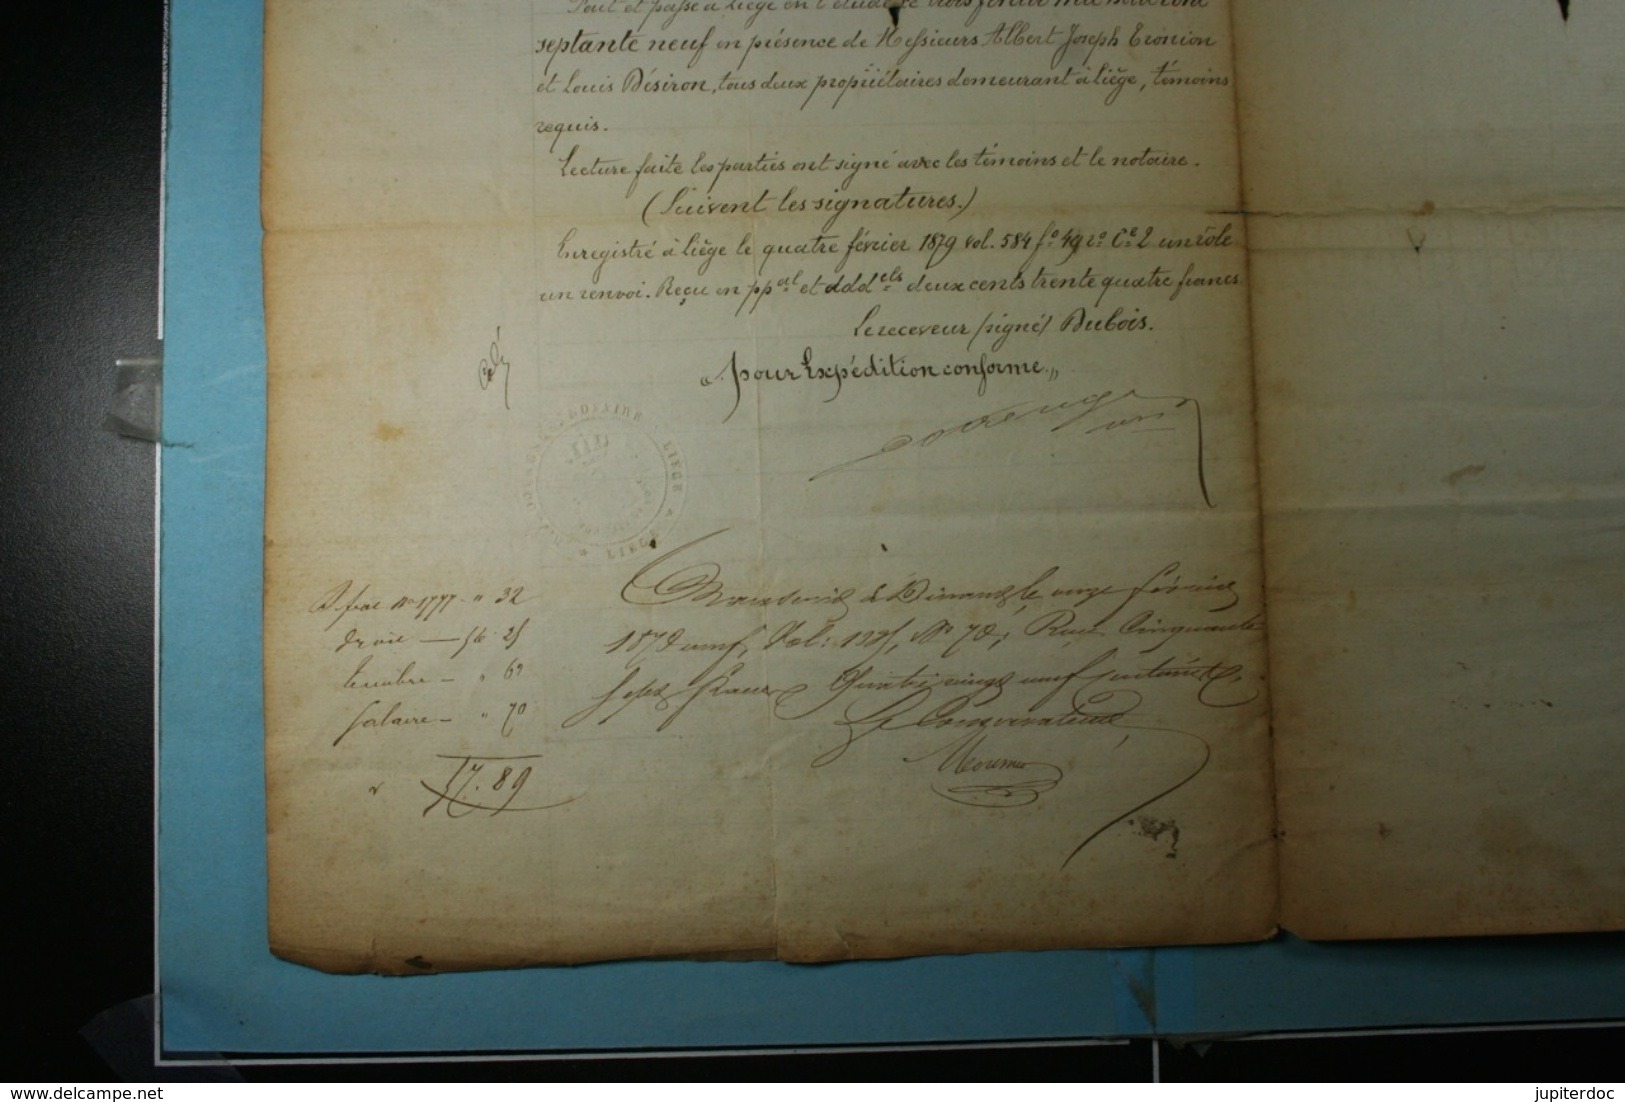 Fait et passé à Liège en l'étude le trois février mil huit cent
septante neuf en présence de Messieurs Albert Joseph Eronion
et Louis Désiron, tous deux propriétaires demeurant à Liège, témoins
requis.
Lecture faite les parties ont signé avec les témoins et le notaire.
(Suivent les signatures.)
Enregistré à Liège le quatre février 1879 vol. 584 fº 49 rº Cᵉ 2 un rôle
un renvoi. Reçu en ppᵃˡ et dddᵉˡˢ deux cents trente quatre francs
Le receveur (signé) Dubois.
"pour Expédition conforme"
LIEGE
Transcrit à Dinant, le onze février
1879 neuf, Vol: Nº 70, Reçu Cinquante
sept francs Quatre vingt neuf centimes.
Le Conservateur
Dépôt nº 1777 " 32
droit — 56.25
timbre — " 62
salaire — " 70
57.89
© delcampe.net
jupiterdoc